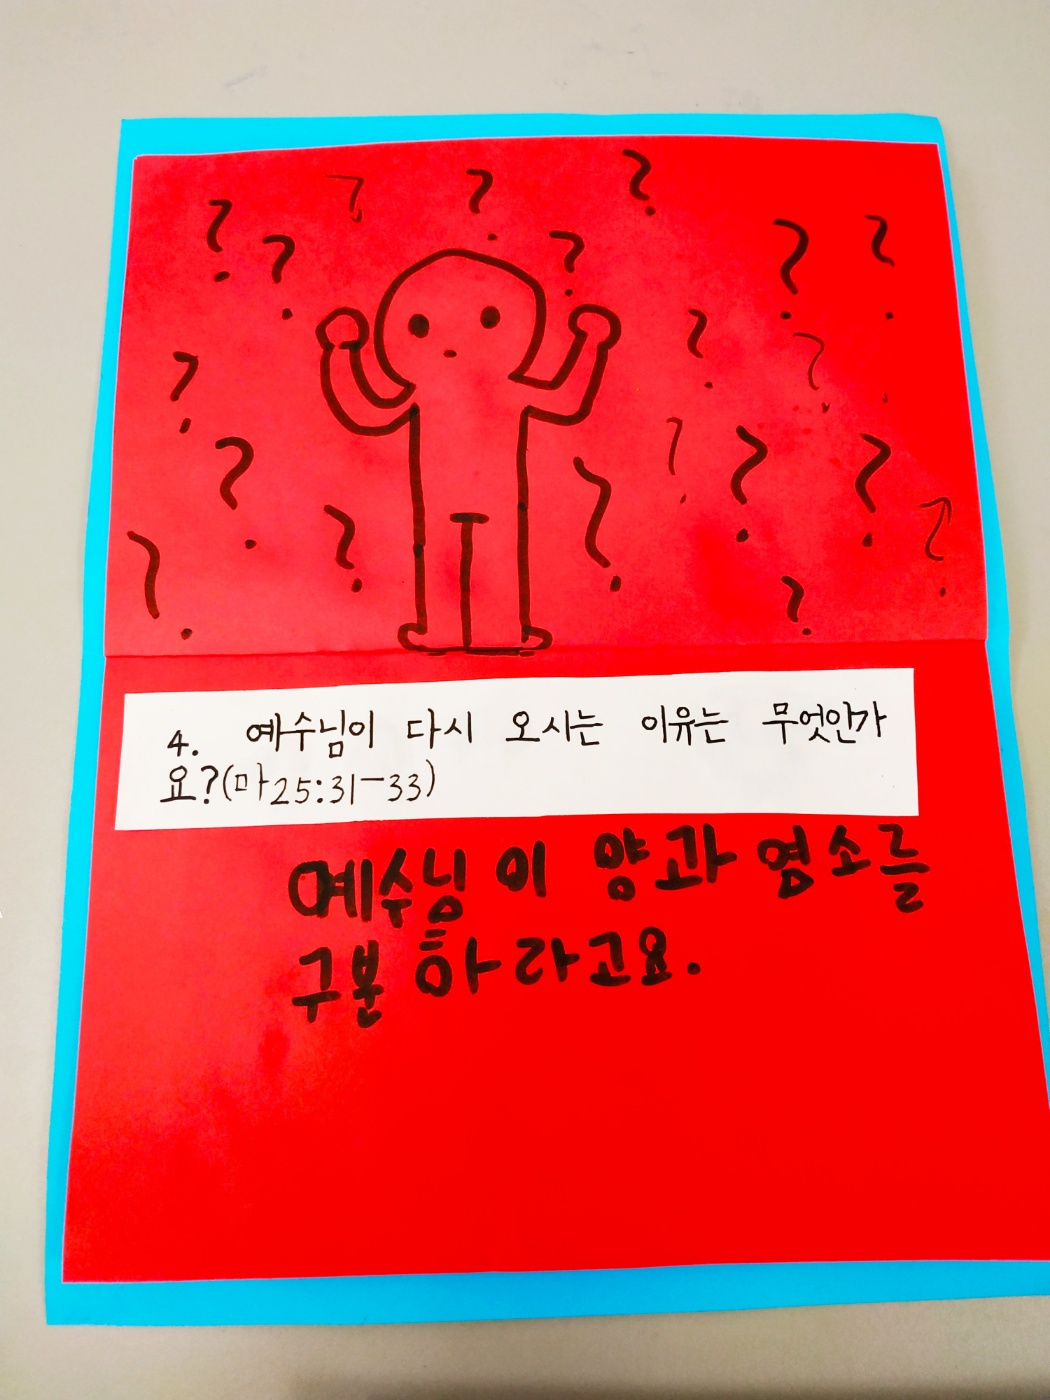 4. 예수님이 다시 오시는 이유는 무엇인가
요?(마25:31-33)
예수님이 양과 염소를
구분하라고요.